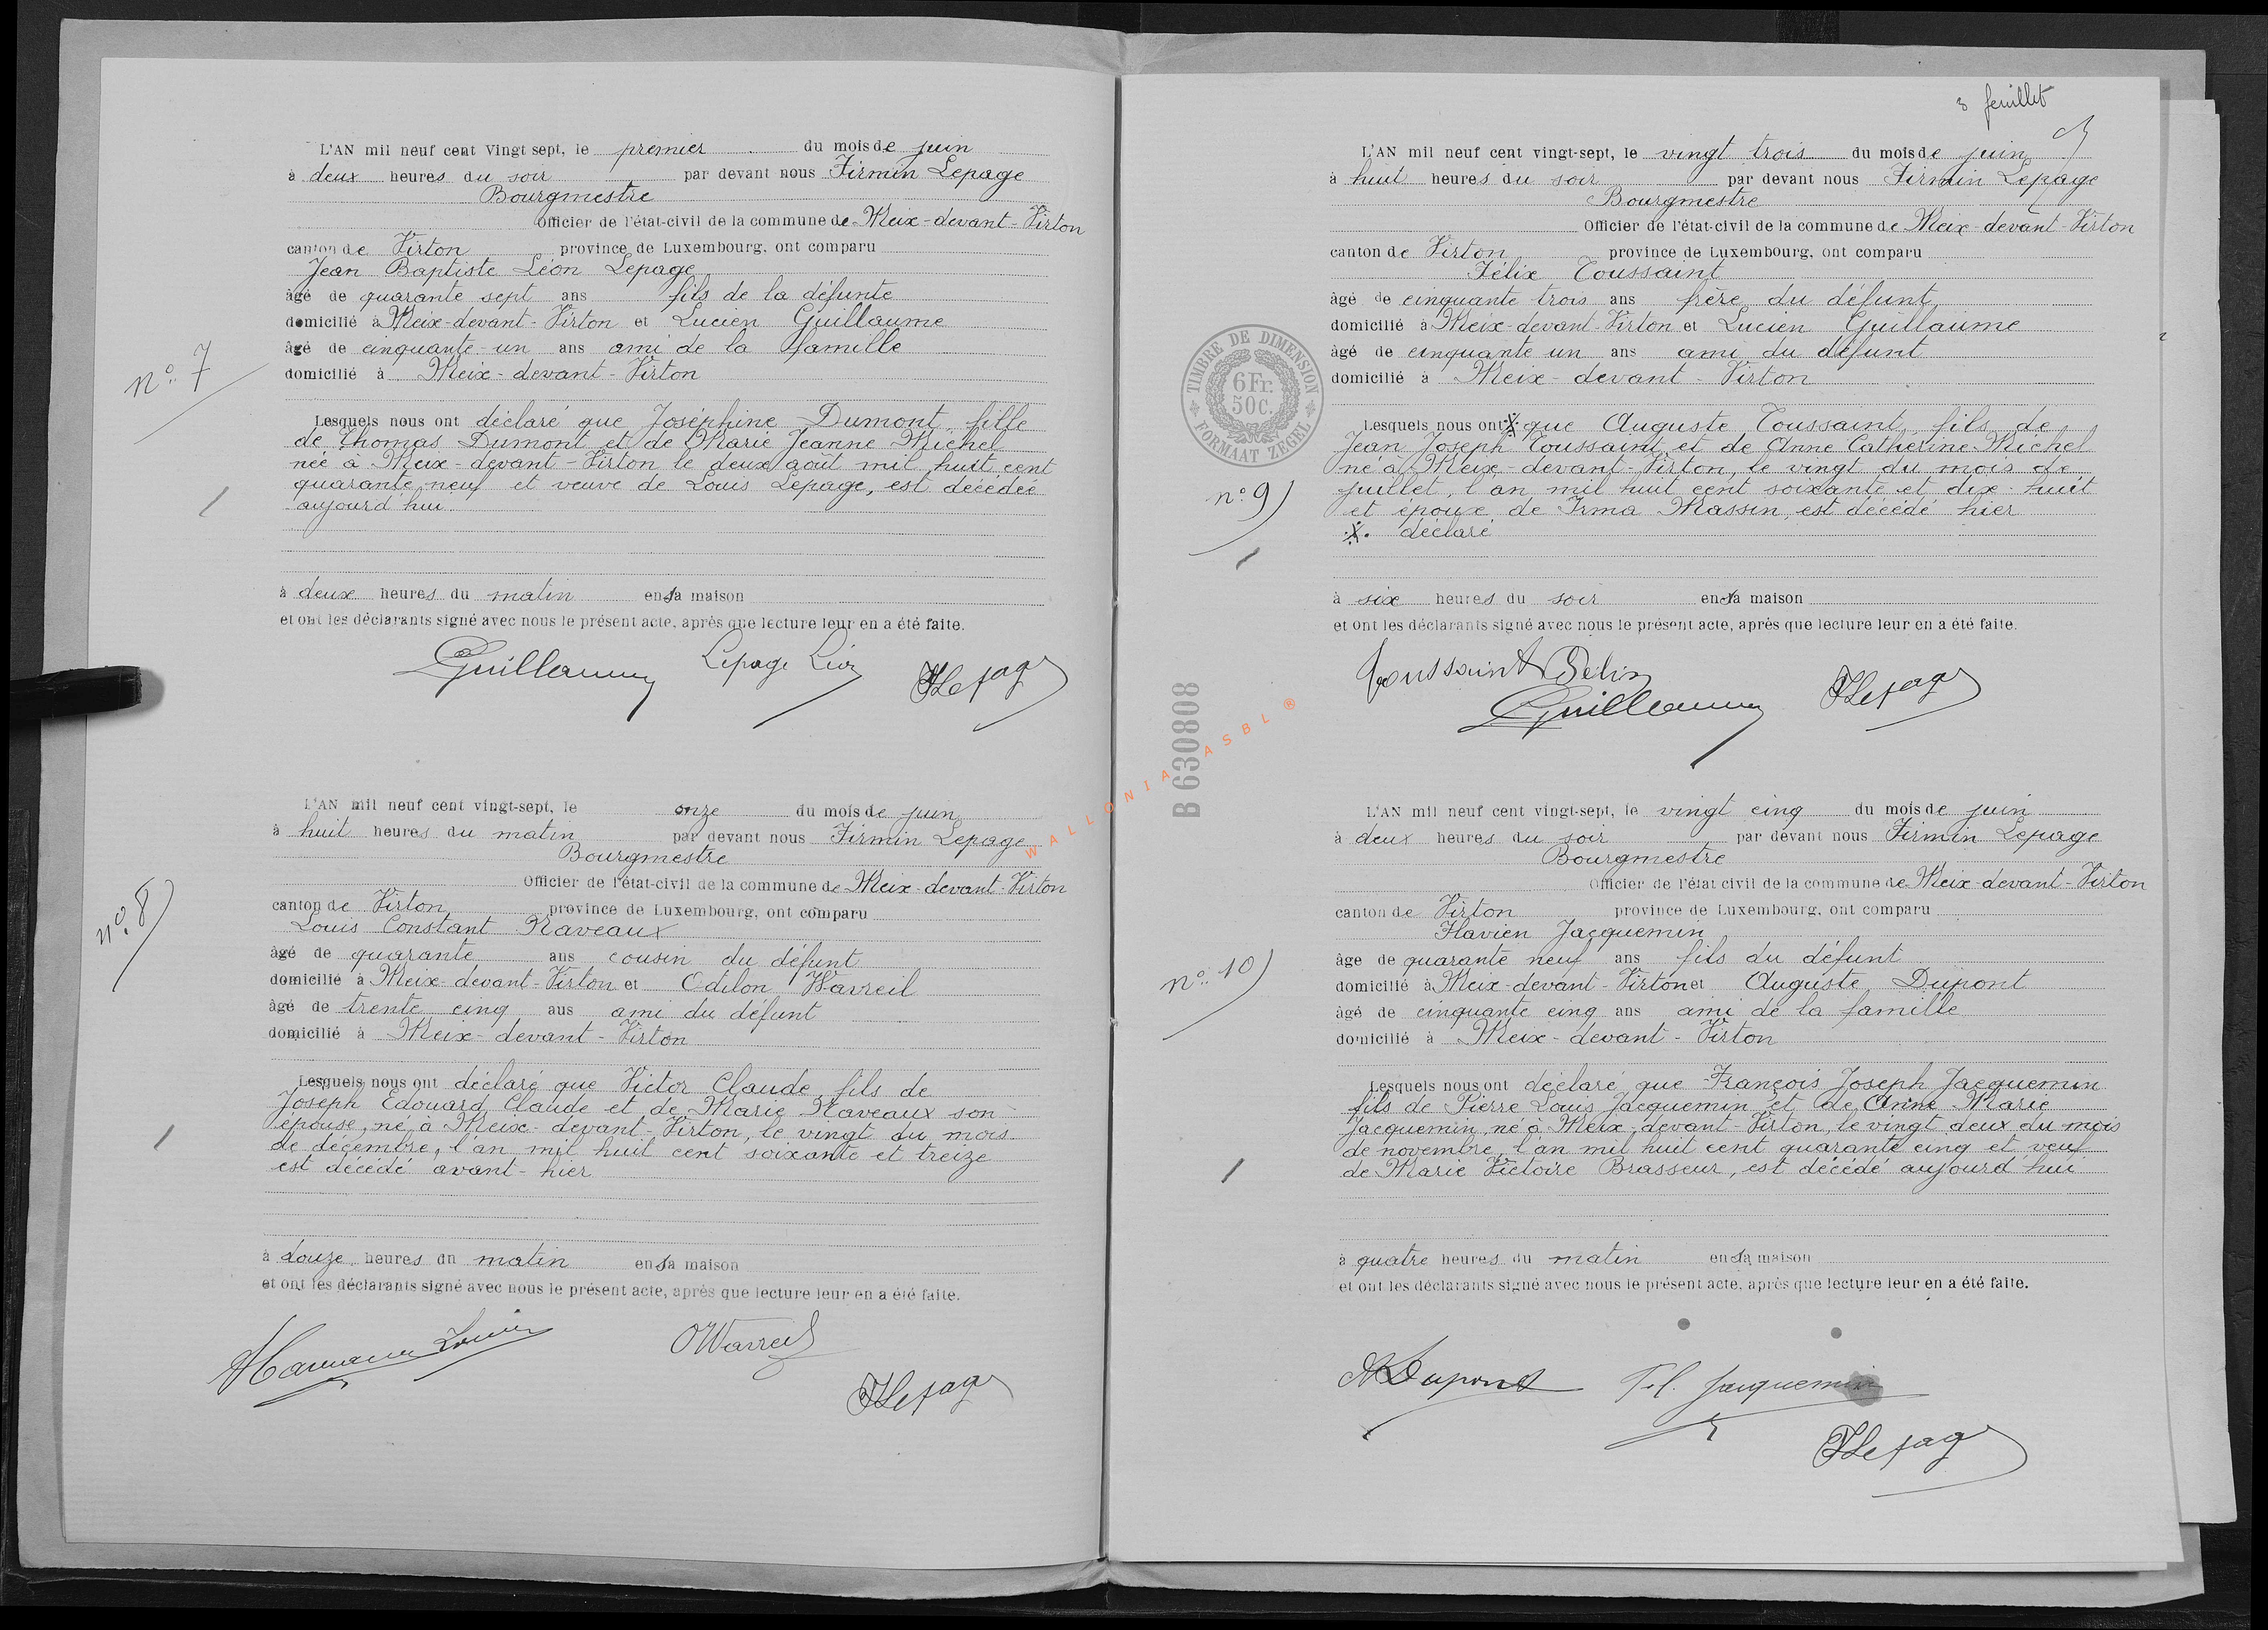 L'AN mil neuf cent Vingt sept, le premier du mois de juin
à deux heures du soir par devant nous Firmin Lepage
Bourgmestre
Officier de l'état-civil de la commune de Meix-devant-Virton
canton de Virton province de Luxembourg, ont comparu
Jean Baptiste Léon Lepage
âgé de quarante sept ans fils de la défunte
domicilié à Meix-devant-Virton et Lucien Guillaume
âgé de cinquante-un ans ami de la famille
domicilié à Meix-devant-Virton
n° 7
Lesquels nous ont déclaré que Joséphine Dumont, fille
de Thomas Dumont et de Marie Jeanne Michel
née à Meix-devant-Virton le deux août mil huit cent
quarante neuf et veuve de Louis Lepage, est décédée
aujourd'hui
à deux heures du matin en sa maison
et ont les déclarants signé avec nous le présent acte, après que lecture leur en a été faite.
Guillaume Lepage Léon FLepage
L'AN mil neuf cent vingt-sept, le onze du mois de juin
à huit heures du matin par devant nous Firmin Lepage
Bourgmestre
Officier de l'état-civil de la commune de Meix-devant-Virton
canton de Virton province de Luxembourg, ont comparu
Louis Constant Naveaux
âgé de quarante ans cousin du défunt
domicilié à Meix-devant-Virton et Odilon Wavreil
âgé de trente cinq ans ami du défunt
domicilié à Meix-devant-Virton
n° 8
Lesquels nous ont déclaré que Victor Claude, fils de
Joseph Edouard Claude et de Marie Naveaux son
épouse, né à Meix-devant-Virton, le vingt du mois
de décembre, l'an mil huit cent soixante et treize
est décédé avant-hier
à douze heures du matin en sa maison
et ont les déclarants signé avec nous le présent acte, après que lecture leur en a été faite.
Louis OWavreil
FLepage
3 feuillet
3
L'AN mil neuf cent vingt-sept, le vingt trois du mois de juin
à huit heures du soir par devant nous Firmin Lepage
Bourgmestre
Officier de l'état-civil de la commune de Meix-devant-Virton
canton de Virton province de Luxembourg, ont comparu
Félix Toussaint
âgé de cinquante trois ans frère du défunt
domicilié à Meix-devant-Virton et Lucien Guillaume
âgé de cinquante un ans ami du défunt
domicilié à Meix-devant-Virton
TIMBRE DE DIMENSION
6 Fr.
50 c.
FORMAAT ZEGEL
n° 9
Lesquels nous ont ※ que Auguste Toussaint, fils de
Jean Joseph Toussaint et de Anne Catherine Michel
né à Meix-devant-Virton, le vingt du mois de
juillet, l'an mil huit cent soixante et dix-huit
et époux de Irma Massin, est décédé hier
※ déclaré
à six heures du soir en sa maison
et ont les déclarants signé avec nous le présent acte, après que lecture leur en a été faite.
Toussaint Félix
Guillaume FLepage
B 630808
WALLONIA ASBL ®
L'AN mil neuf cent vingt-sept, le vingt cinq du mois de juin
à deux heures du soir par devant nous Firmin Lepage
Bourgmestre
Officier de l'état civil de la commune de Meix-devant-Virton
canton de Virton province de Luxembourg, ont comparu
Flavien Jacquemin
âge de quarante neuf ans fils du défunt
domicilié à Meix-devant-Virton et Auguste Dupont
âgé de cinquante cinq ans ami de la famille
domicilié à Meix-devant-Virton
n° 10
Lesquels nous ont déclaré que François Joseph Jacquemin
fils de Pierre Louis Jacquemin et de Anne Marie
Jacquemin, né à Meix-devant-Virton, le vingt deux du mois
de novembre, l'an mil huit cent quarante cinq et veuf
de Marie Victoire Brasseur, est décédé aujourd'hui
à quatre heures du matin en sa maison
et ont les déclarants signé avec nous le présent acte, après que lecture leur en a été faite.
ADupont Fl. Jacquemin
FLepage